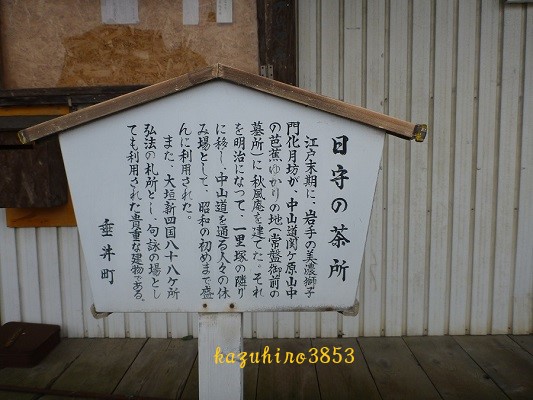 日守の茶所
江戸末期に、岩手の美濃獅子
門化月坊が、中山道関ケ原山中
の芭蕉ゆかりの地(常盤御前の
墓所)に秋風庵を建てた。それ
を明治になって、一里塚の隣り
に移し、中山道を通る人々の休
み場として、昭和の初めまで盛
んに利用された。
また、大垣新四国八十八ケ所
弘法の札所とし、句詠の場とし
ても利用された貴重な建物である。
垂井町
kazuhiro3853